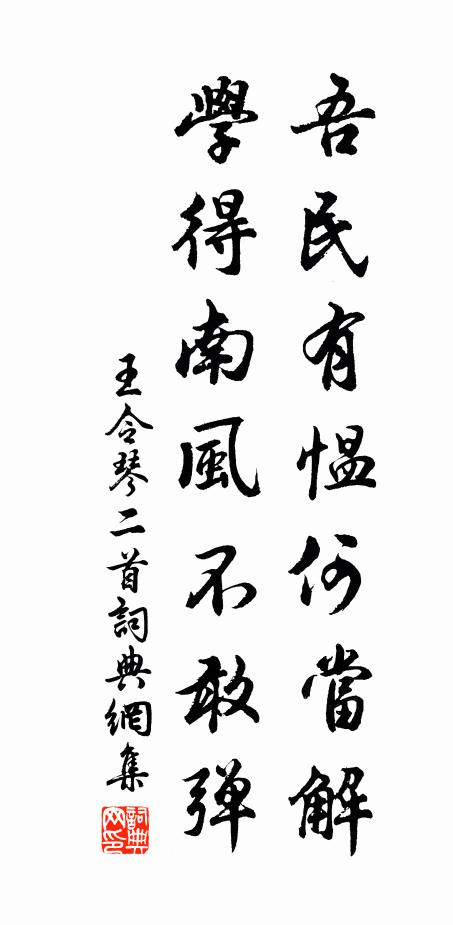 吾民有愠何當解
學得南風不敢弾
王令琴二首詞典網集
詞典網印